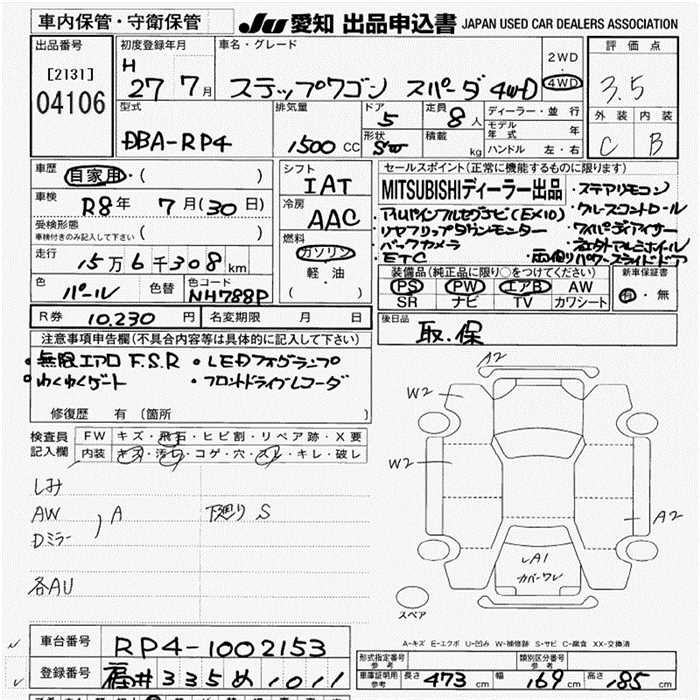 車内保管・守衛保管
JU 愛知 出品申込書 JAPAN USED CAR DEALERS ASSOCIATION
出品番号
[2131]
04106
初度登録年月
H 27 7月
車名・グレード
ステップワゴン スパーダ 4WD
2WD
・
4WD
評価点
3.5
外装 内装
C B
型式
DBA-RP4
排気量
1500 CC
ドア
5
形状
定員
8人
積載
kg
ディーラー・並行
モデル年式 年
ハンドル 左・右
車歴
自家用・( )
車検
R8年 7月(30日)
受検形態
車検付きのみ記入して下さい ( )
走行
15万6千308km
色
パール
色替
色コード
NH788P
シフト
IAT
冷房
AAC
燃料
ガソリン
軽・油
( )
セールスポイント(正常に機能するものに限ります)
MITSUBISHIディーラー出品
・ステアリモコン
・クルーズコントロール
・リヤフリップダウンモニター
・バックカメラ
・ETC
・両側パワースライドドア
装備品(純正品に限り○をつけてください)
PS PW エアB AW
SR ナビ TV カワシート
新車保証書
有・無
R券 10.230円
名変期限 月 日
後日品
取.保
注意事項申告欄(不具合内容等は具体的に記入して下さい)
・無限エアロ F.S.R ・LEDフォグランプ
・わくわくゲート ・フロントドライブレコーダ
修復歴 有 (箇所 )
検査員記入欄
FW キズ・飛石・ヒビ割・リペア跡・X要
内装 キズ・汚れ・コゲ・穴・スレ・キレ・破レ
シミ
AW
Dミラー
) A
下廻り S
各AU
A2
W2
W2
A2
LA1
カバーワレ
スペア
A-キズ E-エクボ U-凹み W-補修跡 S-サビ C-腐食 XX-交換済
車台番号
RP4-1002153
登録番号
福井 335 め 1011
形式指定番号 参考
類別区分番号 参考
車庫証明用 参考
長さ 473cm 幅 169cm 高さ 185cm